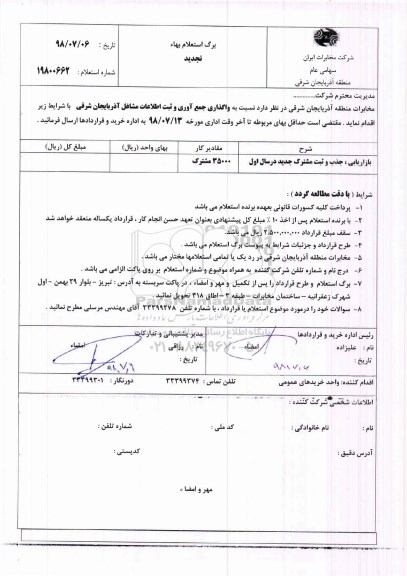 شرکت مخابرات ایران
سهامی عام
منطقه آذربایجان شرقی
برگ استعلام بهاء
تجدید
تاریخ : ۹۸/۰۷/۰۶
شماره استعلام : ۱۹۸۰۰۶۶۲
مدیریت محترم شرکت..............
مخابرات منطقه آذربایجان شرقی در نظر دارد نسبت به واگذاری جمع آوری و ثبت اطلاعات مشاغل آذربایجان شرقی با شرایط زیر
اقدام نماید . مقتضی است حداقل بهای مربوطه تا آخر وقت اداری مورخه ۹۸/۰۷/۱۳ به اداره خرید و قراردادها ارسال فرمائید .
شرح مقادیر کار بهای واحد (ریال) مبلغ کل (ریال)
بازاریابی ، جذب و ثبت مشترک جدید درسال اول ۳۵۰۰۰ مشترک
شرایط ( با دقت مطالعه گردد ) :
۱- پرداخت کلیه کسورات قانونی بعهده برنده استعلام می باشد
۲- با برنده استعلام پس از اخذ ۱۰ ٪ مبلغ کل پیشنهادی بعنوان تعهد حسن انجام کار ، قرارداد یکساله منعقد خواهد شد
۳- سقف مبلغ قرارداد ۲،۵۰۰،۰۰۰،۰۰۰ ریال می باشد.
۴- طرح قرارداد و جزئیات شرایط به پیوست برگ استعلام می باشد.
۵- مخابرات منطقه آذربایجان شرقی در رد یک یا تمامی استعلامها مختار می باشد.
۶- درج نام و شماره تلفن شرکت کننده به همراه موضوع و شماره استعلام بر روی پاکت الزامی می باشد .
۷- برگ استعلام و طرح قرارداد را پس از تکمیل و مهر و امضاء ، در پاکت سربسته به آدرس : تبریز – بلوار ۲۹ بهمن – اول
شهرک زعفرانیه – ساختمان مخابرات – طبقه ۳ – اطاق ۳۱۸ تحویل نمائید .
۸- سوالات خود را درمورد موضوع استعلام یا قرارداد ، با شماره تلفن ۳۳۳۹۹۲۷۸ آقای مهندس مرسلی مطرح نمائید .
رئیس اداره خرید و قراردادها مدیر پشتیبانی و تدارکات
نام : علیزاده امضاء نام : رزاقی امضاء
تاریخ : تاریخ :
اقدام کننده: واحد خریدهای عمومی تلفن تماس : ۳۳۳۹۹۳۷۴ دورنگار : ۳۳۴۹۹۳۰۱
اطلاعات شخصی شرکت کننده :
نام : نام خانوادگی : کد ملی : شماره تلفن :
آدرس دقیق : کدپستی :
مهر و امضاء